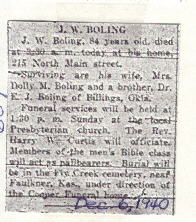 J. W. BOLING
J. W. Boling, 84 years old, died
at 3:30 a. m. today at his home,
215 North Main street.
Surviving are his wife, Mrs.
Dolly M. Boling and a brother, Dr.
E. J. Boling of Billings, Okla.
Funeral services will be held at
1:30 p. m. Sunday at the local
Presbyterian church. The Rev.
Harry W. Curtis will officiate.
Members of the men's Bible class
will act as pallbearers. Burial will
be in the Fly Creek cemetery, near
Faulkner, Kas., under direction of
the Cooper
Dec. 6, 1940